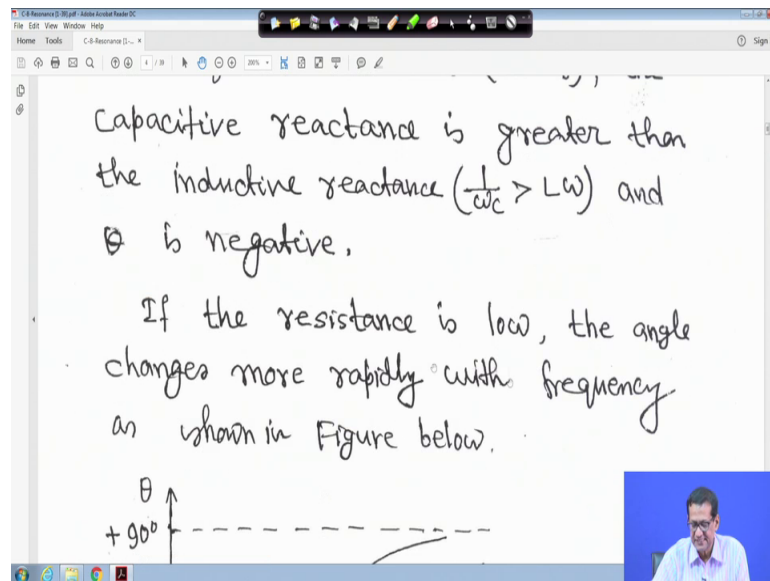 C-8-Resonance [1-39].pdf - Adobe Acrobat Reader DC
File Edit View Window Help
Home Tools C-8-Resonance [1-... × Sign
4 / 39 200%
capacitive reactance is greater than
the inductive reactance (1/ωc > Lω) and
θ is negative.
If the resistance is low, the angle
changes more rapidly with frequency
as shown in Figure below.
θ
+90°